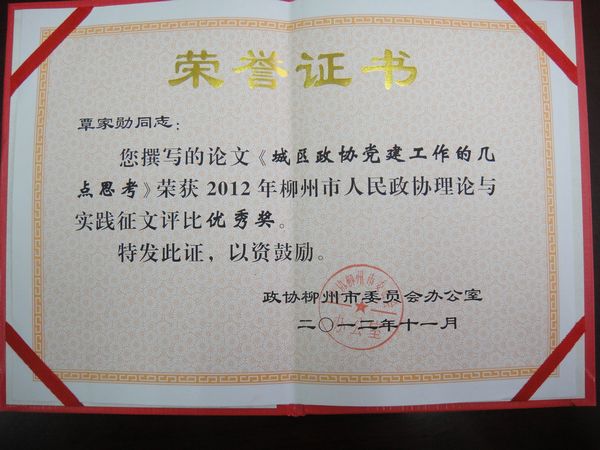 荣誉证书
覃家勋同志：
您撰写的论文《城区政协党建工作的几
点思考》荣获2012年柳州市人民政协理论与
实践征文评比优秀奖。
特发此证，以资鼓励。
政协柳州市委员会办公室
二〇一二年十一月